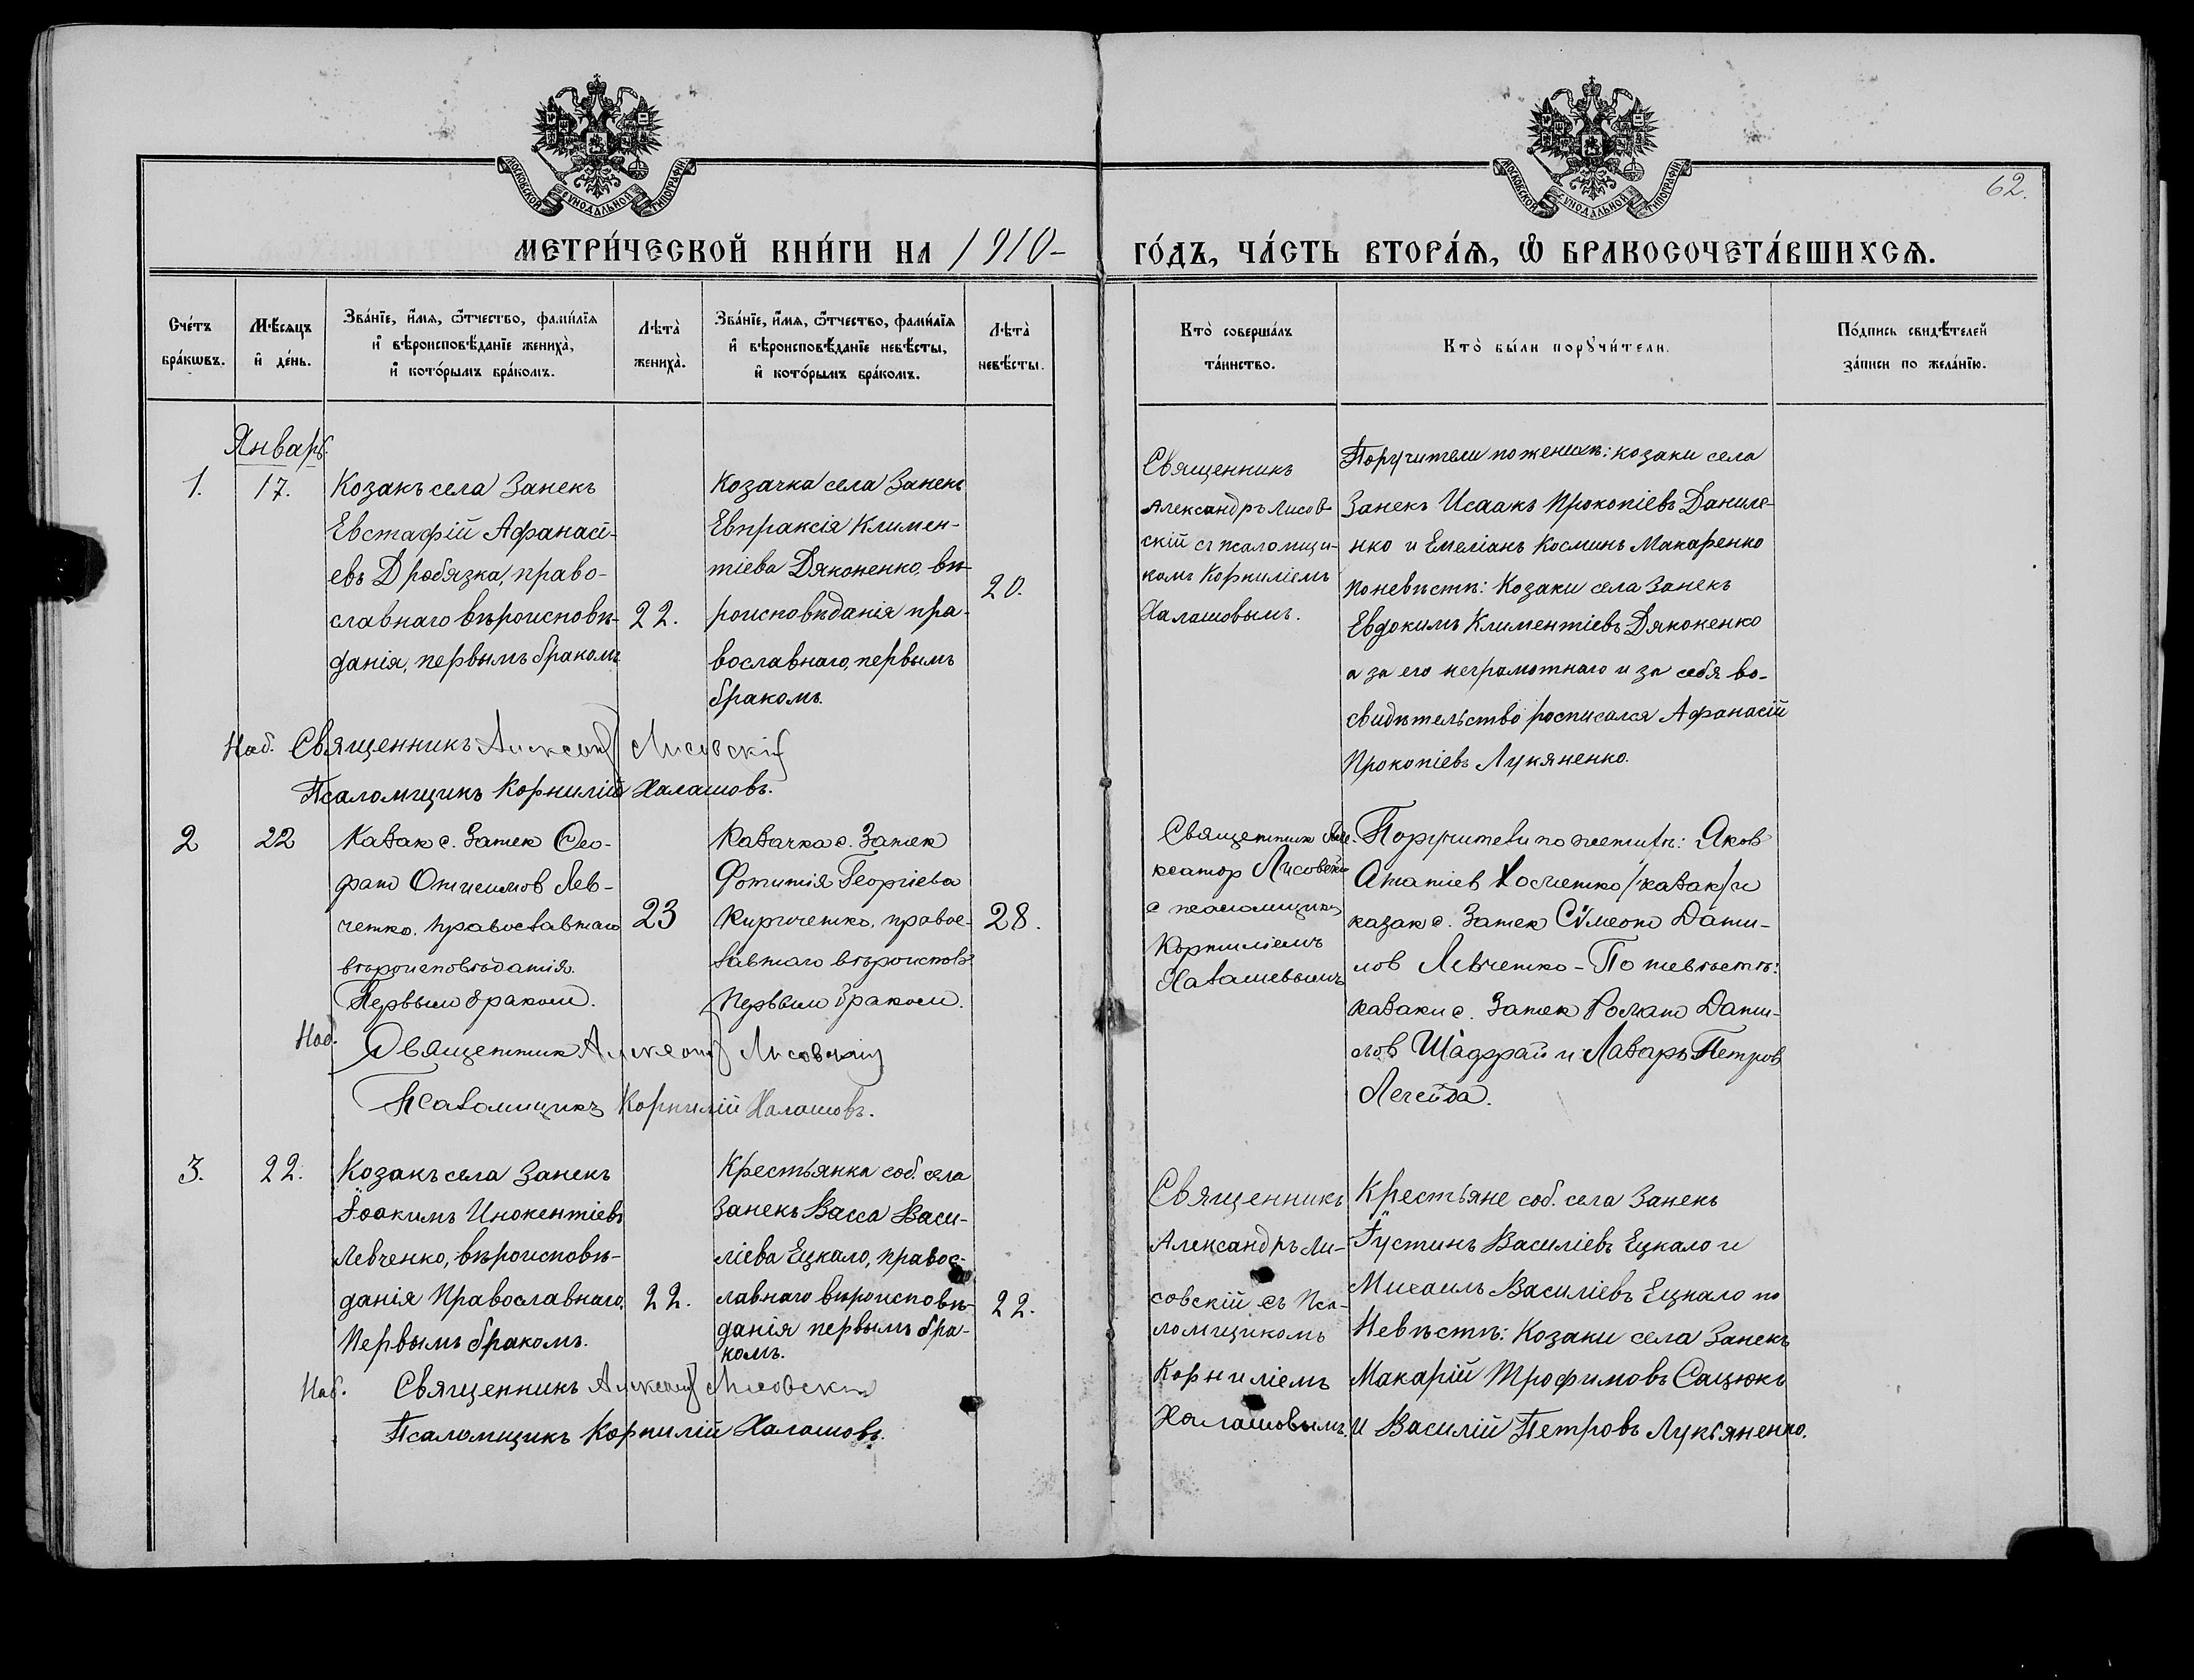 МОСКОВСКОЙ СѴНОДАЛЬНОЙ ТИПОГРАФІИ
МОСКОВСКОЙ СѴНОДАЛЬНОЙ ТИПОГРАФІИ
62.
МЕТРИ́ЧЕСКОЙ КНИ́ГИ НА 1910- ГО́ДЪ, ЧА́СТЬ ВТОРА́Ѧ, Ѽ БРАКОСОЧЕТА́ВШИХСѦ.
Сче́тъ
бра́кѡвъ.
Мѣ́сяцъ
и҆ де́нь.
Зва́нїе, и҆́мя, ѻ҆́тчество, фами́лїя
и҆ вѣроисповѣ́данїе жениха̀,
и҆ кото́рымъ бра́комъ.
Лѣта̀
жениха̀.
Зва́нїе, и҆́мя, ѻ҆́тчество, фами́лїя
и҆ вѣроисповѣ́данїе невѣ́сты,
и҆ кото́рымъ бра́комъ.
Лѣта̀
невѣ́сты.
Кто̀ соверша́лъ
та́инство.
Кто̀ бы́ли порꙋчи́тели.
По́дпись свидѣ́телей
за́писи по жела́нїю.
Январь.
1.
17.
Козакъ села Занекъ
Евстафій Афанасі-
евъ Дробязка, право-
славнаго вѣроисповѣ-
данія, первымъ бракомъ
22.
Козачка села Занекъ
Евпраксія Климен-
тіева Дяконенко, вѣ-
роисповѣданія пра-
вославнаго, первымъ
бракомъ.
20.
Священникъ
Александръ Лисов-
скій съ псаломщи-
комъ Корниліемъ
Халашовымъ.
Поручители по женихѣ: козаки села
Занекъ Исаакъ Прокопіевъ Даниле-
нко и Емеліанъ Косминъ Макаренко
по невѣстѣ: Козаки села Занекъ
Евдокимъ Климентіевъ Дяконенко
а за его неграмотнаго и за себя во-
свидѣтельство росписался Афанасій
Прокопіевъ Лукяненко.
Наб. Священникъ Александ Лисовскій
Псаломщикъ Корнилій Халашовъ.
2
22
Казак с. Занек Ѳео-
фан Онисимов Лев-
ченко. православнаго
вѣроисповѣданія.
Первым браком.
23
Казачка с. Занек
Фотинія Георгіева
Кириченко, правос-
лавнаго вѣроиспов.
Первым браком.
28.
Священник Але-
ксандр Лисовскій
с псаломщиком
Корниліемъ
Халашевымъ
Поручители по женихѣ: Яков
Ананіев Косченко /казак/ и
казак с. Занек Сѵмеон Дани-
лов Левченко - По невѣстѣ:
казаки с. Занек Роман Дани-
лов Шадрай и Лазарь Петров
Легейда.
Наб. Священник Александ Лисовскій
Псаломщикъ Корнилій Халашовъ.
3.
22.
Козакъ села Занекъ
Іоакимъ Инокентіевъ
Левченко, вѣроисповѣ-
данія Православнаго,
Первымъ бракомъ.
22.
Крестьянка соб. села
Занекъ Васса Васи-
ліева Ецкало, правос-
лавнаго вѣроисповѣ-
данія первымъ бра-
комъ.
22.
Священникъ
Александръ Ли-
совскій съ Пса-
ломщикомъ
Корниліемъ
Халашовымъ.
Крестьяне соб. села Занекъ
Іустинъ Василіевъ Ецкало и
Михаилъ Василіевъ Ецкало по
Невѣстѣ: Козаки села Занекъ
Макарій Трофимовъ Сацюкъ
и Василій Петровъ Лукьяненко.
Наб. Священникъ Александ Лисовскій
Псаломщикъ Корнилій Халашовъ.